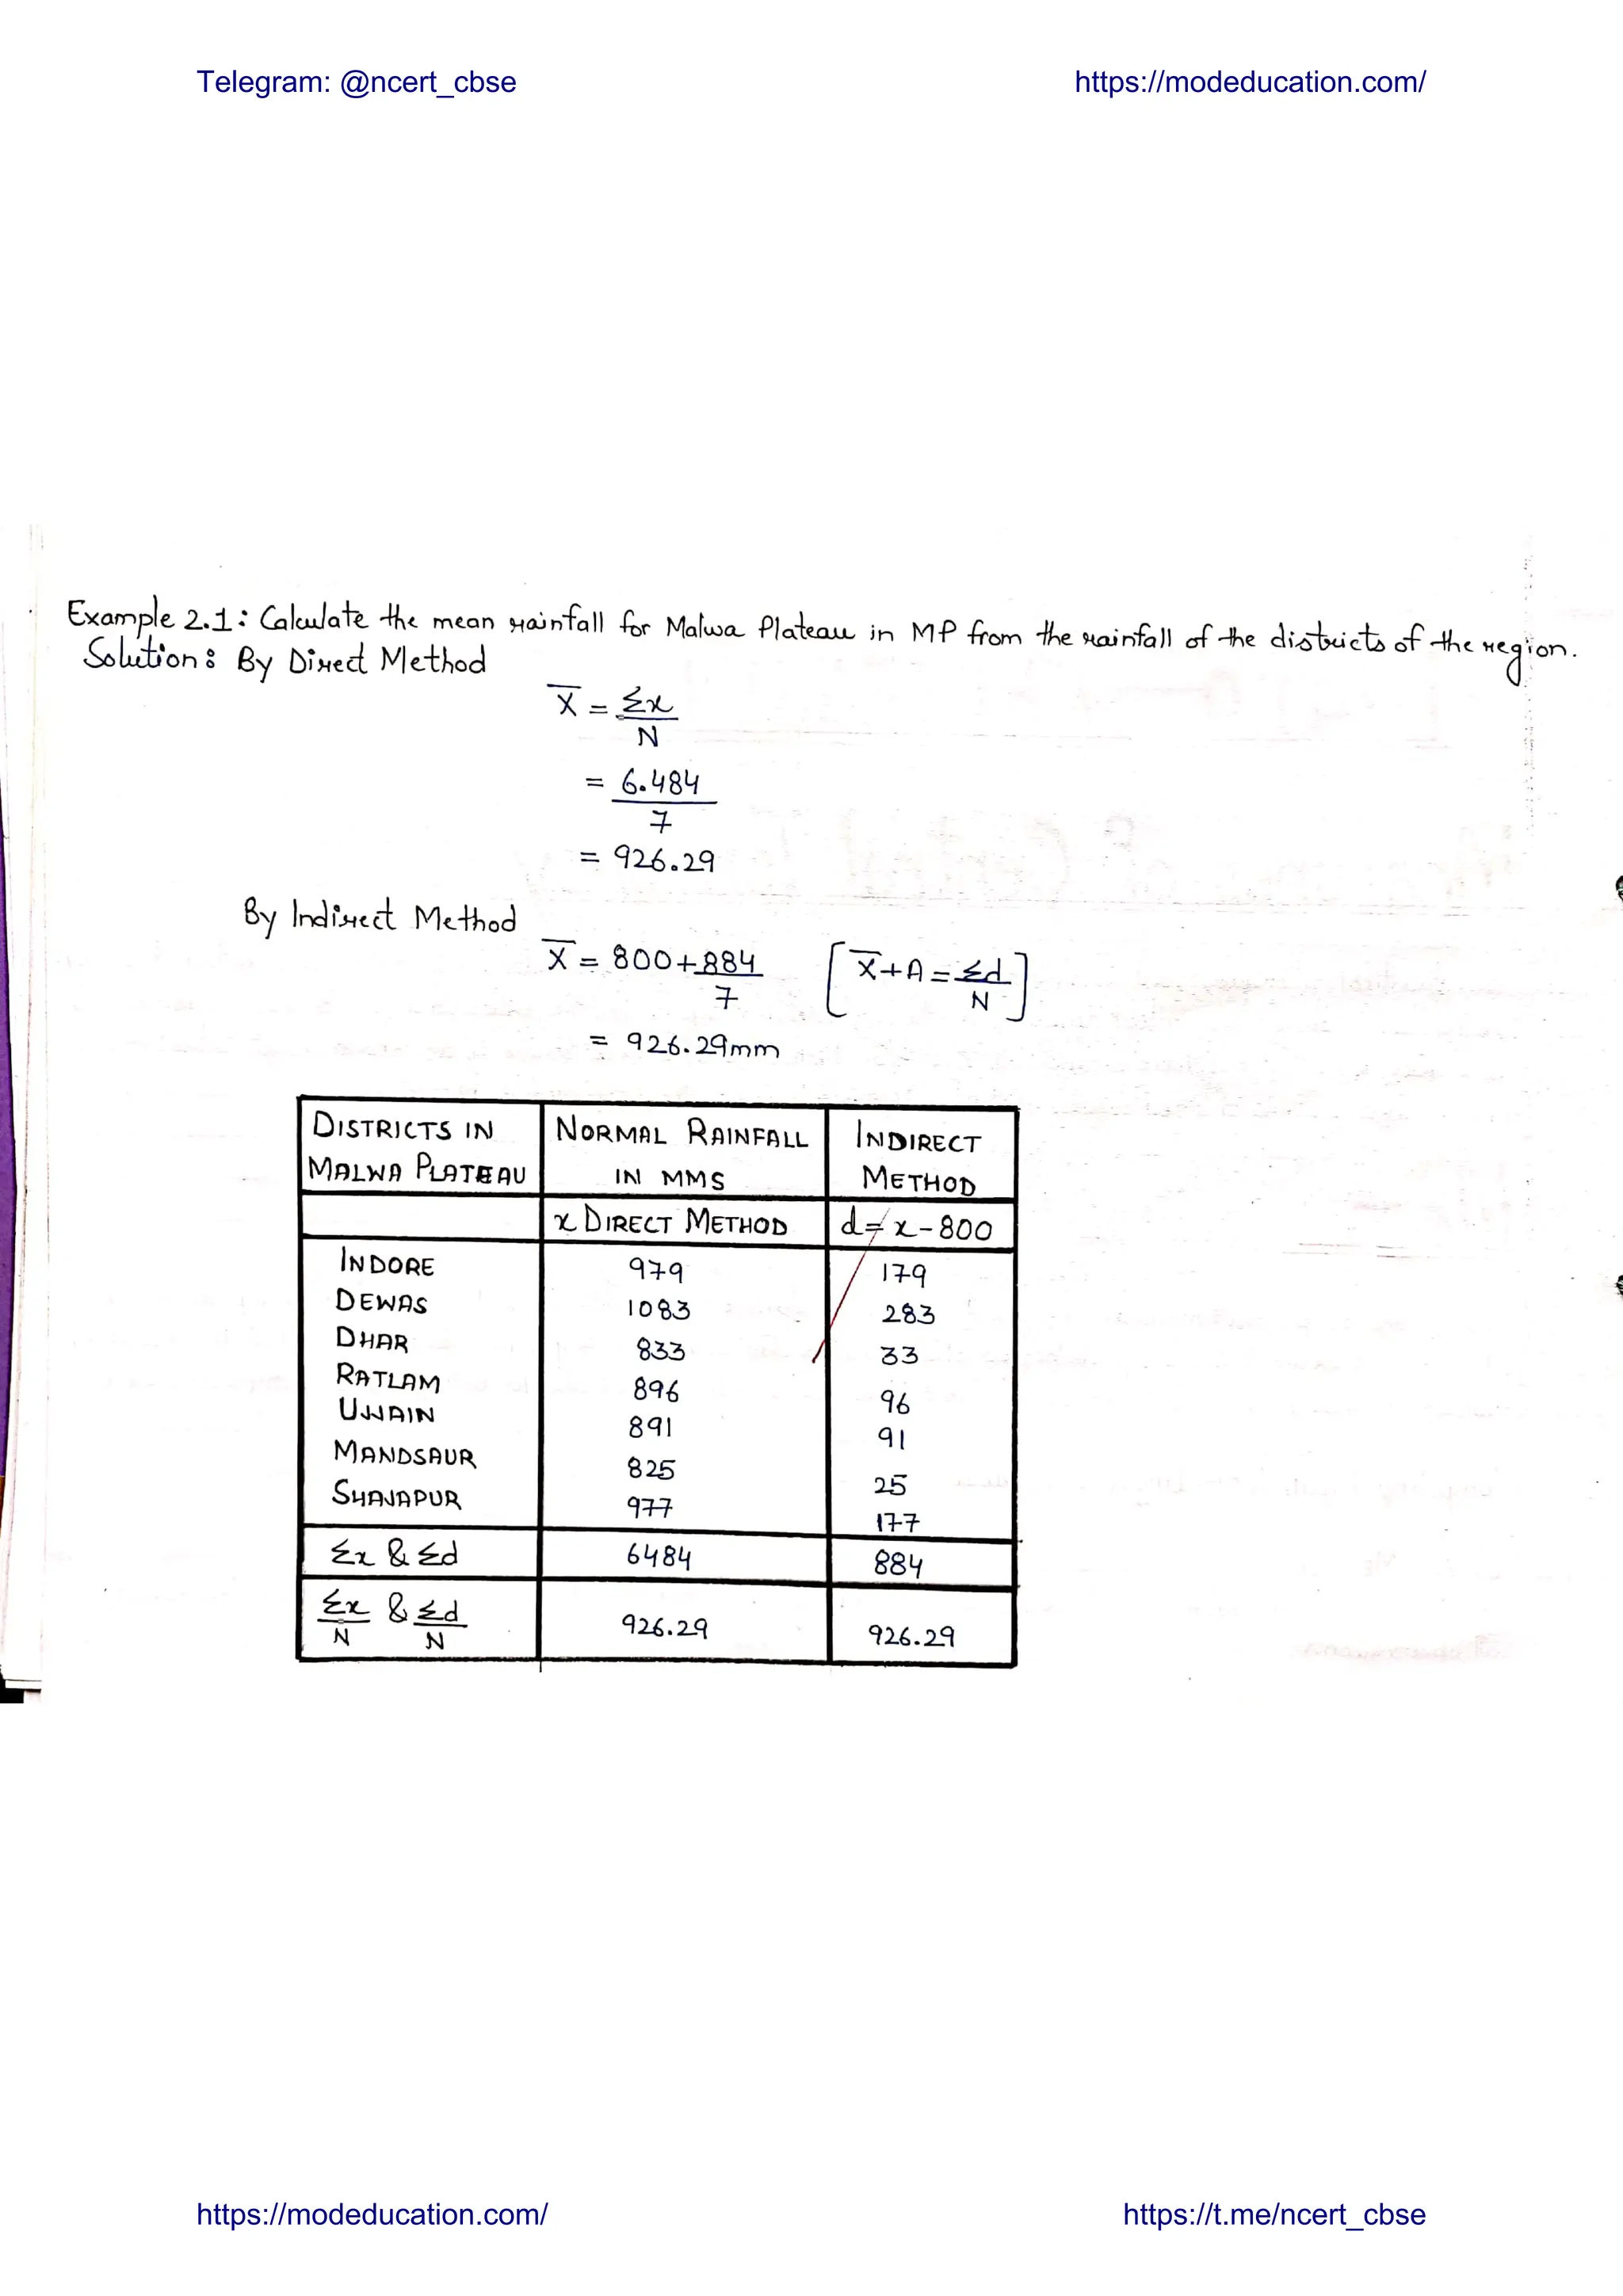 Telegram: @ncert_cbse https://modeducation.com/
Example 2.1: Calculate the mean rainfall for Malwa Plateau in MP from the rainfall of the districts of the region.
Solution: By Direct Method
X̅ = Σx
N
= 6.484
7
= 926.29
By Indirect Method
X̅ = 800+884 [X̅+A = Σd
7 N]
= 926.29mm
DISTRICTS IN NORMAL RAINFALL INDIRECT
MALWA PLATEAU IN MMS METHOD
x DIRECT METHOD d = x-800
INDORE 979 179
DEWAS 1083 283
DHAR 833 33
RATLAM 896 96
UJJAIN 891 91
MANDSAUR 825 25
SHAJAPUR 977 177
Σx & Σd 6484 884
Σx & Σd 926.29 926.29
N N
https://modeducation.com/ https://t.me/ncert_cbse